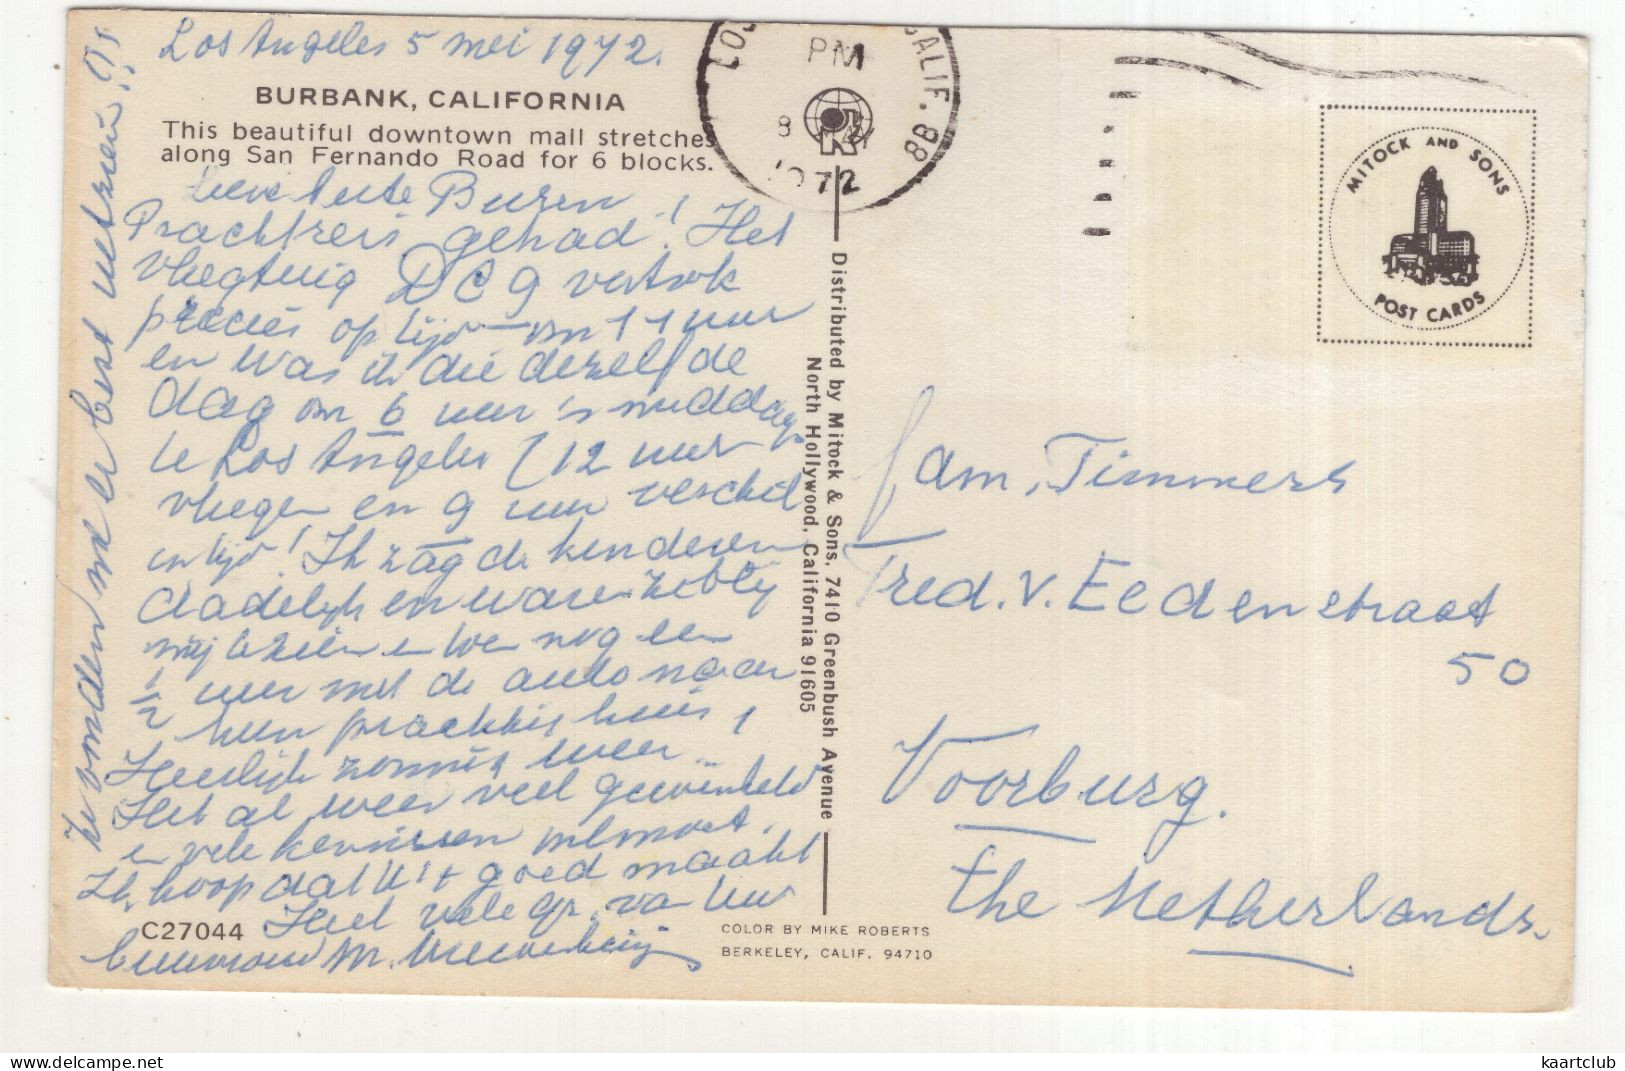 Los Angeles 5 mei 1972.
BURBANK, CALIFORNIA
This beautiful downtown mall stretches
along San Fernando Road for 6 blocks.
Lieve beste Buren
Prachtreis gehad! Het
vliegtuig DC9 vertrok
precies op tijd om 11 uur
en was ik die dezelfde
dag om 6 uur 's middags
te Los Angeles (12 uur
vliegen en 9 uur verschil
in tijd! Ik zag de kinderen
dadelijk en waren zo blij
mij te zien en toen nog een
1/2 uur met de auto naar
hun prachtig huis,
Heerlijk zonnig weer
Heb al weer veel gewinkeld
en vele kennissen ontmoet.
Ik hoop dat U 't goed maakt
Heel vele gr. van Uw
buurvrouw M.
ze vonden me er best uitzien!!
C27044
COLOR BY MIKE ROBERTS
BERKELEY, CALIF. 94710
Distributed by Mitock & Sons, 7410 Greenbush Avenue
North Hollywood, California 91605
CALIF. 8B
PM
8
1972
MITOCK AND SONS
POST CARDS
Fam. Timmers
Fred. v. Eedenstraat
50
Voorburg.
the Netherlands.
kaartclub